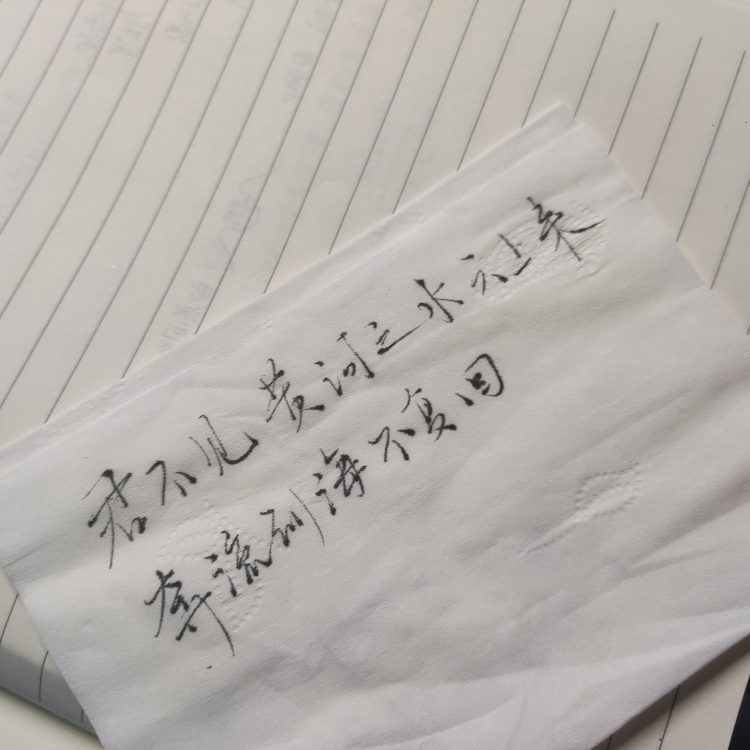 君不见黄河之水天上来
奔流到海不复回